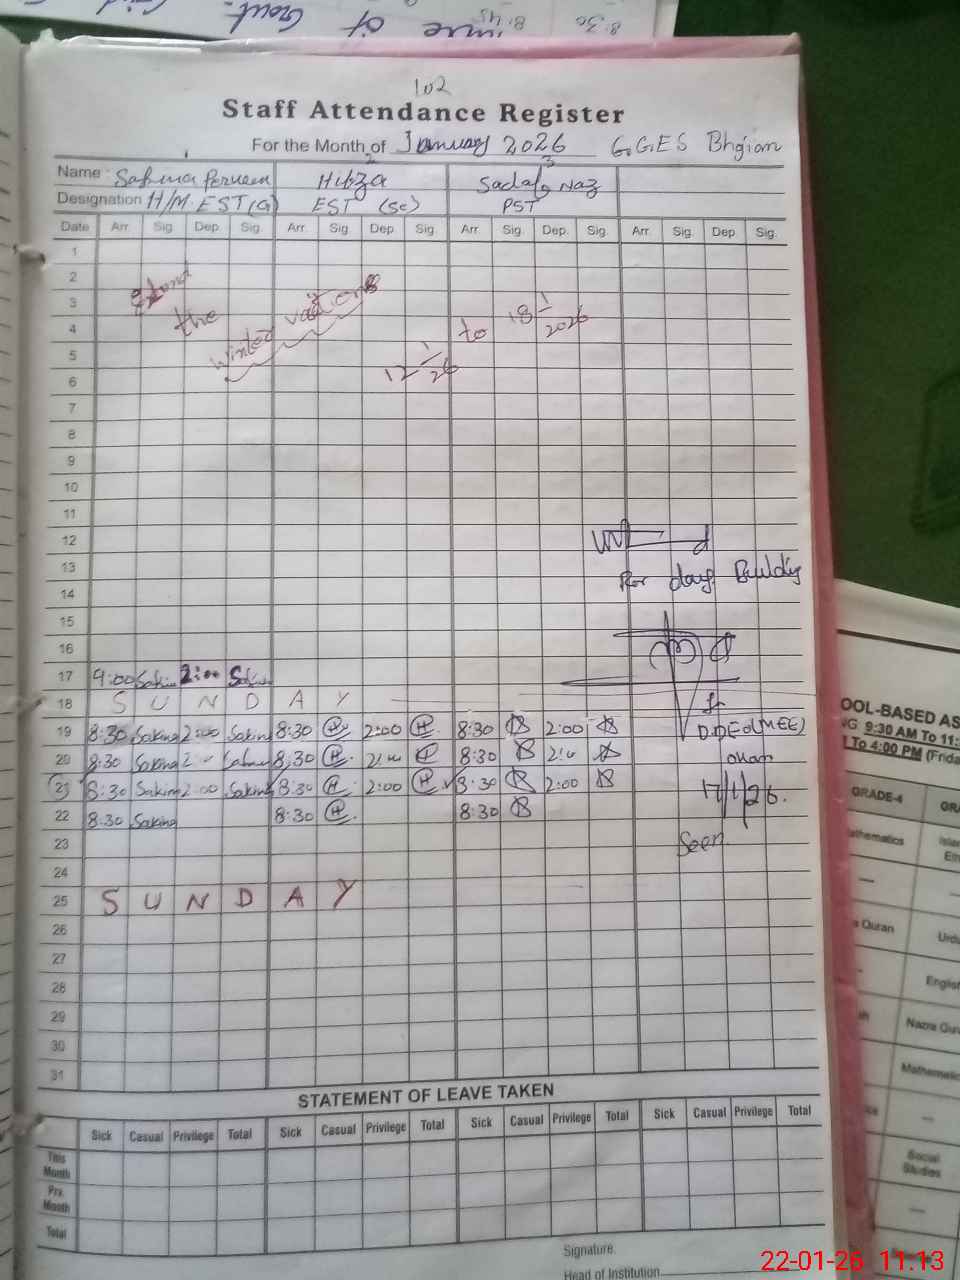 8:30
8:45
of Gout.
102
Staff Attendance Register
For the Month of January 2026 G.G.E.S Bhgiam
2 3
Name : Sakina Perveen Hibza Sadaf Naz
Designation H/M. EST(G) EST (Sc) PST
Date Arr. Sig. Dep. Sig. Arr. Sig. Dep. Sig. Arr. Sig. Dep. Sig. Arr. Sig. Dep. Sig.
1
2
3
4
5
6
7
8
9
10
11
12
13
14
15
16
17 9:00 Sakin 2:00 Sakin
18 S U N D A Y
19 8:30 Sakina 2:00 Sakina 8:30 H 2:00 H 8:30 2:00
20 8:30 Sakina 8:30 H 8:30
21 8:30 Sakina 2:00 Sakina 8:30 H 2:00 H 8:30 2:00
22 8:30 Sakina 8:30 H 8:30
23
24
25 S U N D A Y
26
27
28
29
30
31
the
winter vacations
12/1/26 to 18/1/2026
For dang. Buildig
D.DEO(MEE)
17/1/26.
Seen.
STATEMENT OF LEAVE TAKEN
Sick Casual Privilege Total Sick Casual Privilege Total Sick Casual Privilege Total Sick Casual Privilege Total
This Month
Prx. Month
Total
Signature.
Head of Institution
OOL-BASED AS
NG 9:30 AM To 11:
To 4:00 PM (Frida
GRADE-4 GRA
thematics
Quran Urdu
English
Nazra Qur
Mathematic
Social Studies
22-01-26 11.13